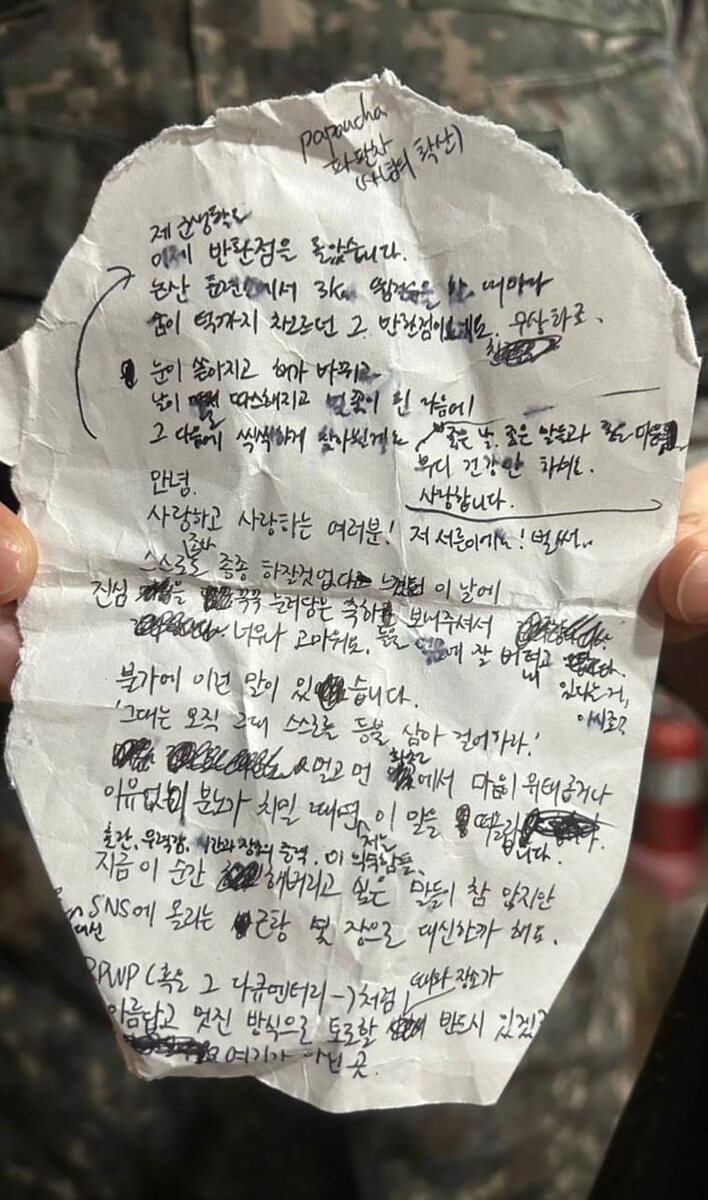 papaucha
파판차
제 군생활도
이제 반환점을 돌았습니다.
논산 훈련소에서 3km 뜀걸음을 할 때마다
숨이 턱까지 차오르던 그 반환점이 무상하죠.
눈이 쏟아지고 해가 바뀌고
날이 따스해지고 벚꽃이 핀 다음에
그 다음에 씩씩하게 찾아뵐게요
좋은 날, 좋은 말들과 좋은 마음
부디 건강만 하세요.
사랑합니다.
안녕.
사랑하고 사랑하는 여러분! 저 서른이에요! 벌써..
스스로도 종종 하잘것없다 느껴던 이 날에
진심을 꾹꾹 눌러담은 축하 보내주셔서
너무나 고마워요. 잘 버티고
있다는 거,
아시죠?
불가에 이런 말이 있습니다.
'그대는 오직 그대 스스로를 등불 삼아 걸어가라.'
멀고 먼 에서 마음이 위태롭거나
이유없이 분노가 치밀 때면, 이 말을 떠올립니다.
혼란, 무력감, 시간과 장소의 출력, 이
지금 이 순간 해버리고 싶은 말들이 참 많지만
SNS에 올리는 근황 몇 장으로 대신할까 해요.
대신
RPWP (혹은 그 다큐멘터리-)처럼 때와 장소가
아름답고 멋진 방식으로 토로할 반드시 있겠죠
여기가 아닌 곳.